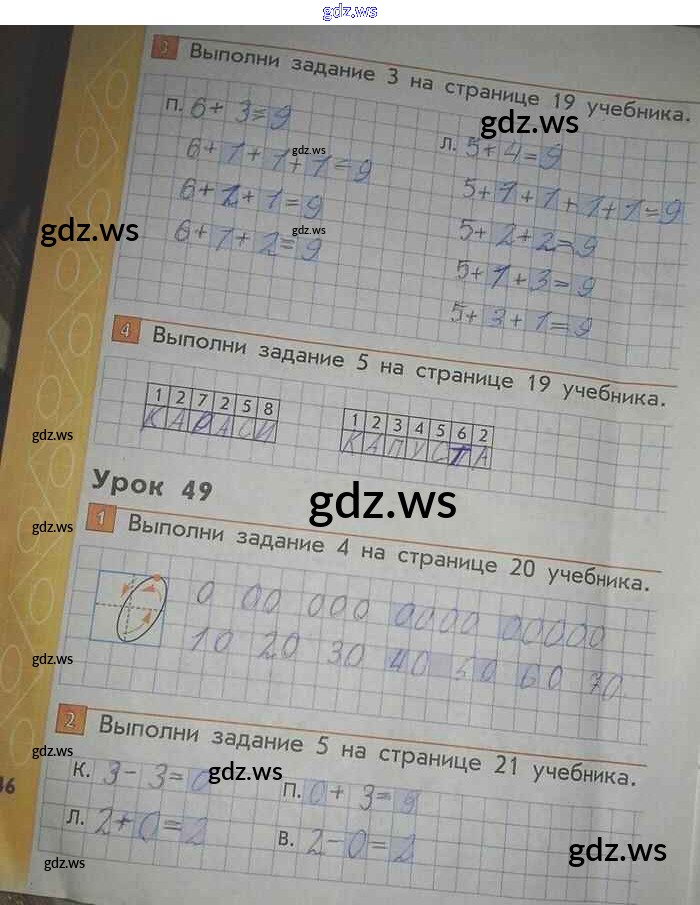 gdz.ws
3 Выполни задание 3 на странице 19 учебника.
gdz.ws
п. 6+3=9
л. 5+4=9
gdz.ws
6+1+1+1=9
5+1+1+1+1=9
6+2+1=9
gdz.ws
gdz.ws
5+2+2=9
6+1+2=9
5+1+3=9
5+3+1=9
4 Выполни задание 5 на странице 19 учебника.
1 2 7 2 5 8
1 2 3 4 5 6 2
КАРАСИ
КАПУСТА
gdz.ws
Урок 49
gdz.ws
gdz.ws
1 Выполни задание 4 на странице 20 учебника.
0 00 000 0000 00000
10 20 30 40 50 60 70
gdz.ws
2 Выполни задание 5 на странице 21 учебника.
gdz.ws
к. 3-3=0
gdz.ws
п. 0+3=9
л. 2+0=2
в. 2-0=2
gdz.ws
gdz.ws